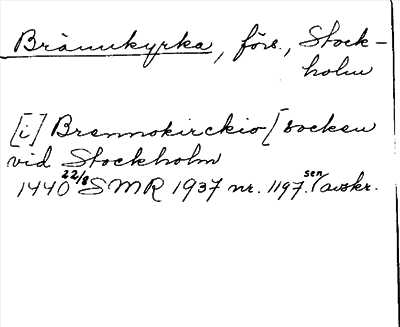 Brännkyrka, förs., Stock-
holm
[i] Brennokirckio [socken
vid Stockholm
1440 22/8 SMR 1937 nr. 1197. sen avskr.